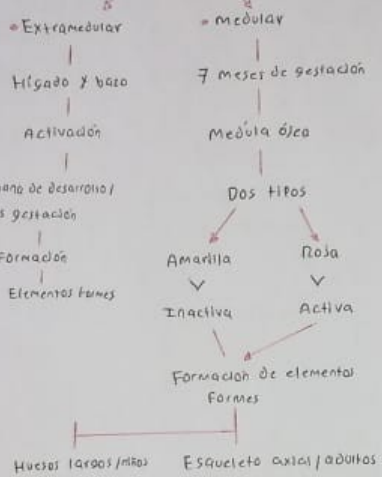 Extramedular
Hígado y bazo
Activación
de desarrollo/
gestación
Formación
Elementos formes
medular
7 meses de gestación
Medula ósea
Dos tipos
Amarilla
Inactiva
Roja
Activa
Formación de elementos
Formes
Huesos largos/niños
Esqueleto axial/adultos